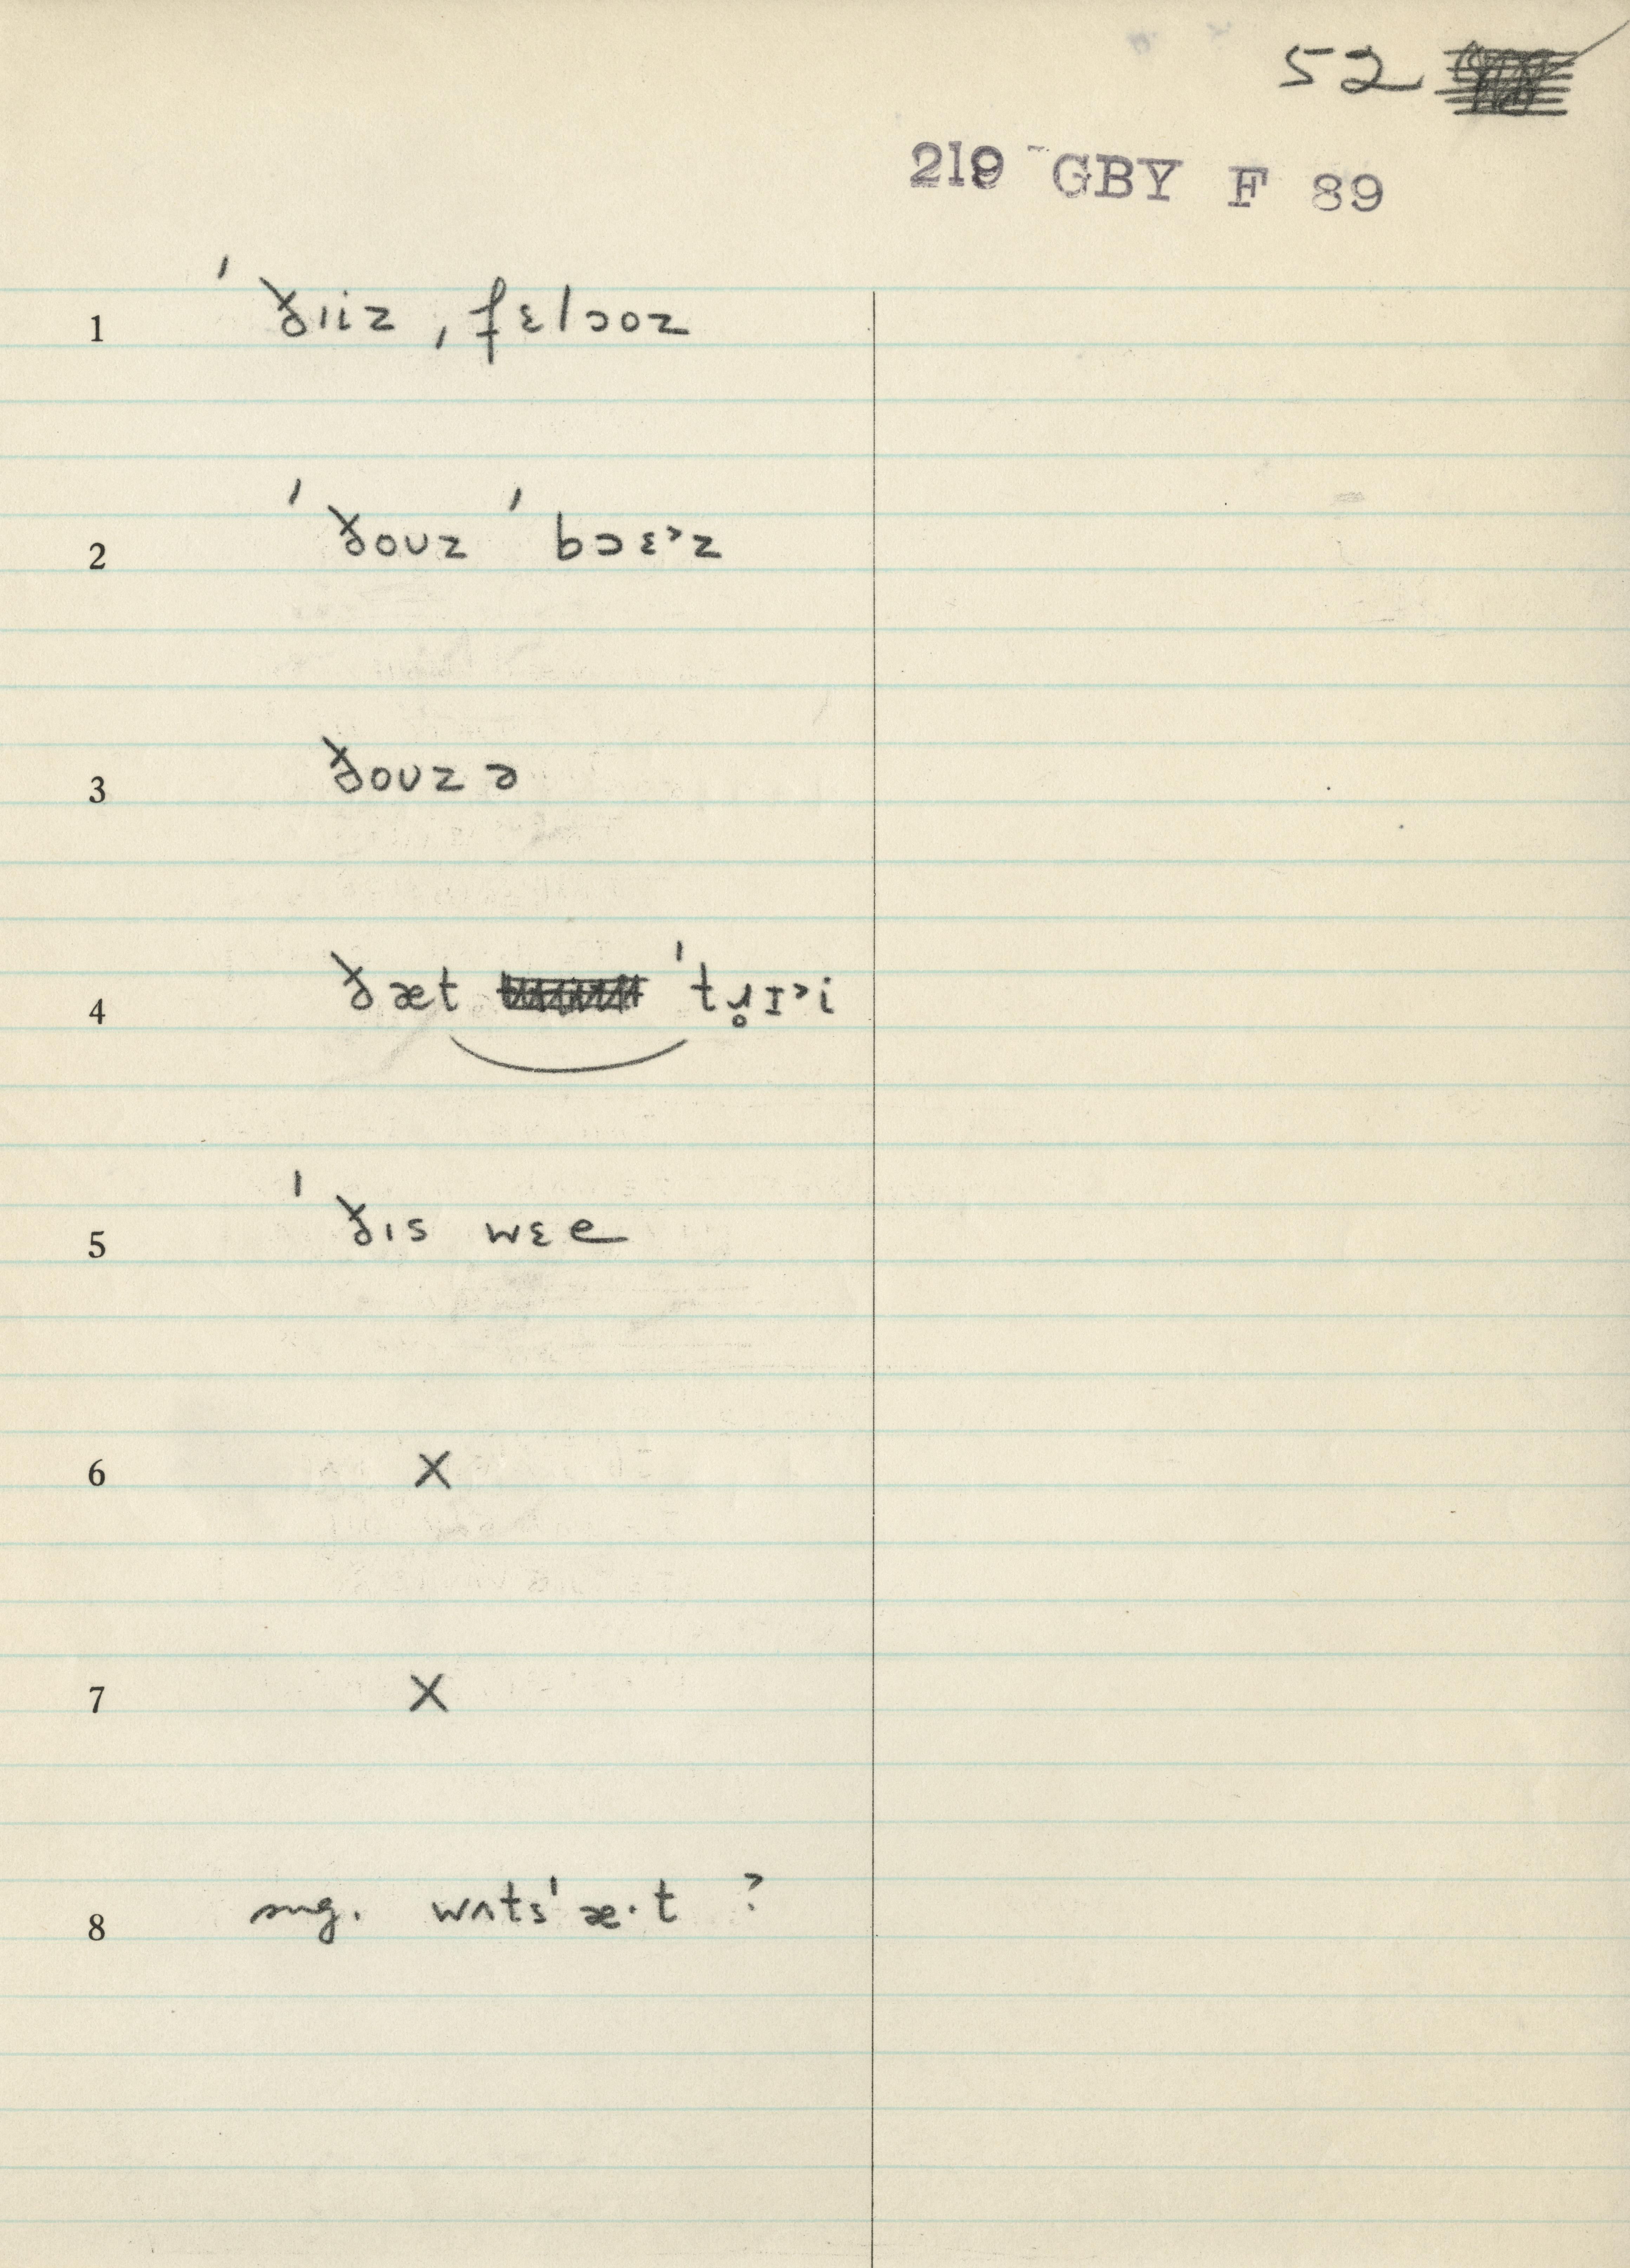 52
219 GBY F 89
1 ˈðɪiz ˌfɛlɔoz
2 ˈðoʊz ˈbɔɛ˃z
3 ðoʊz ə
4 ðæt ˈtɹ̥ɪ˃i
5 ˈðɪs wɛe
6 X
7 X
8 sug. wʌtsˈæ·t ?